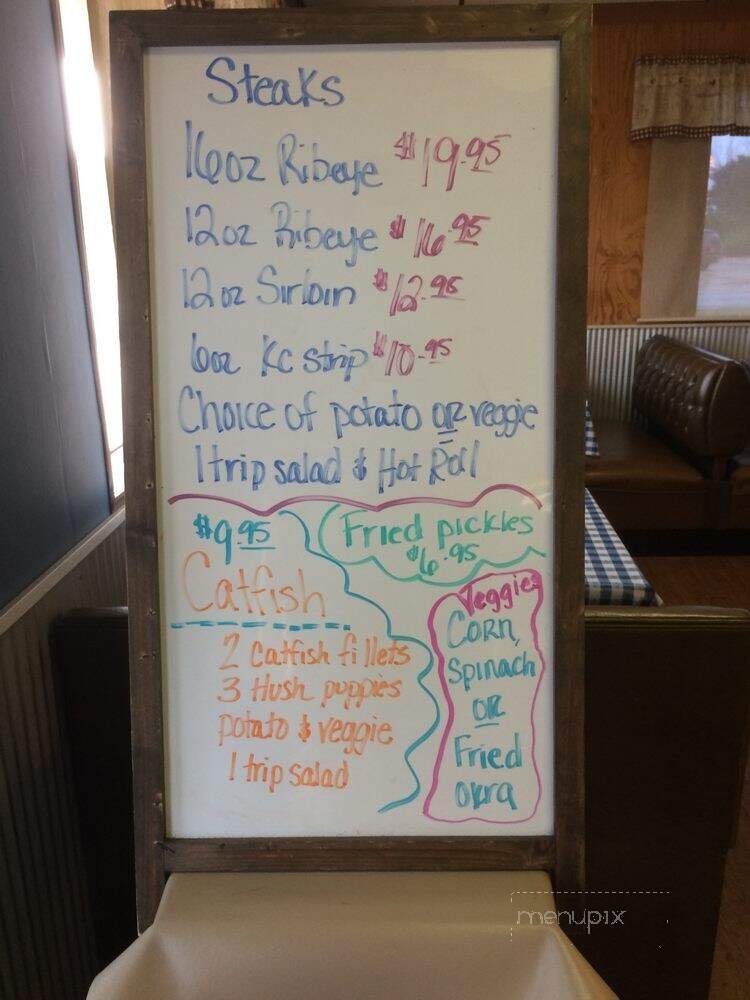 Steaks
16oz Ribeye $19.95
12oz Ribeye $16.95
12oz Sirloin $12.95
6oz KC strip $10.95
Choice of potato or veggie
1 trip salad & Hot Roll
$9.95
Catfish
2 Catfish fillets
3 Hush puppies
potato & veggie
1 trip salad
Fried pickles
$6.95
Veggies
Corn,
Spinach
or
Fried
okra
menupix